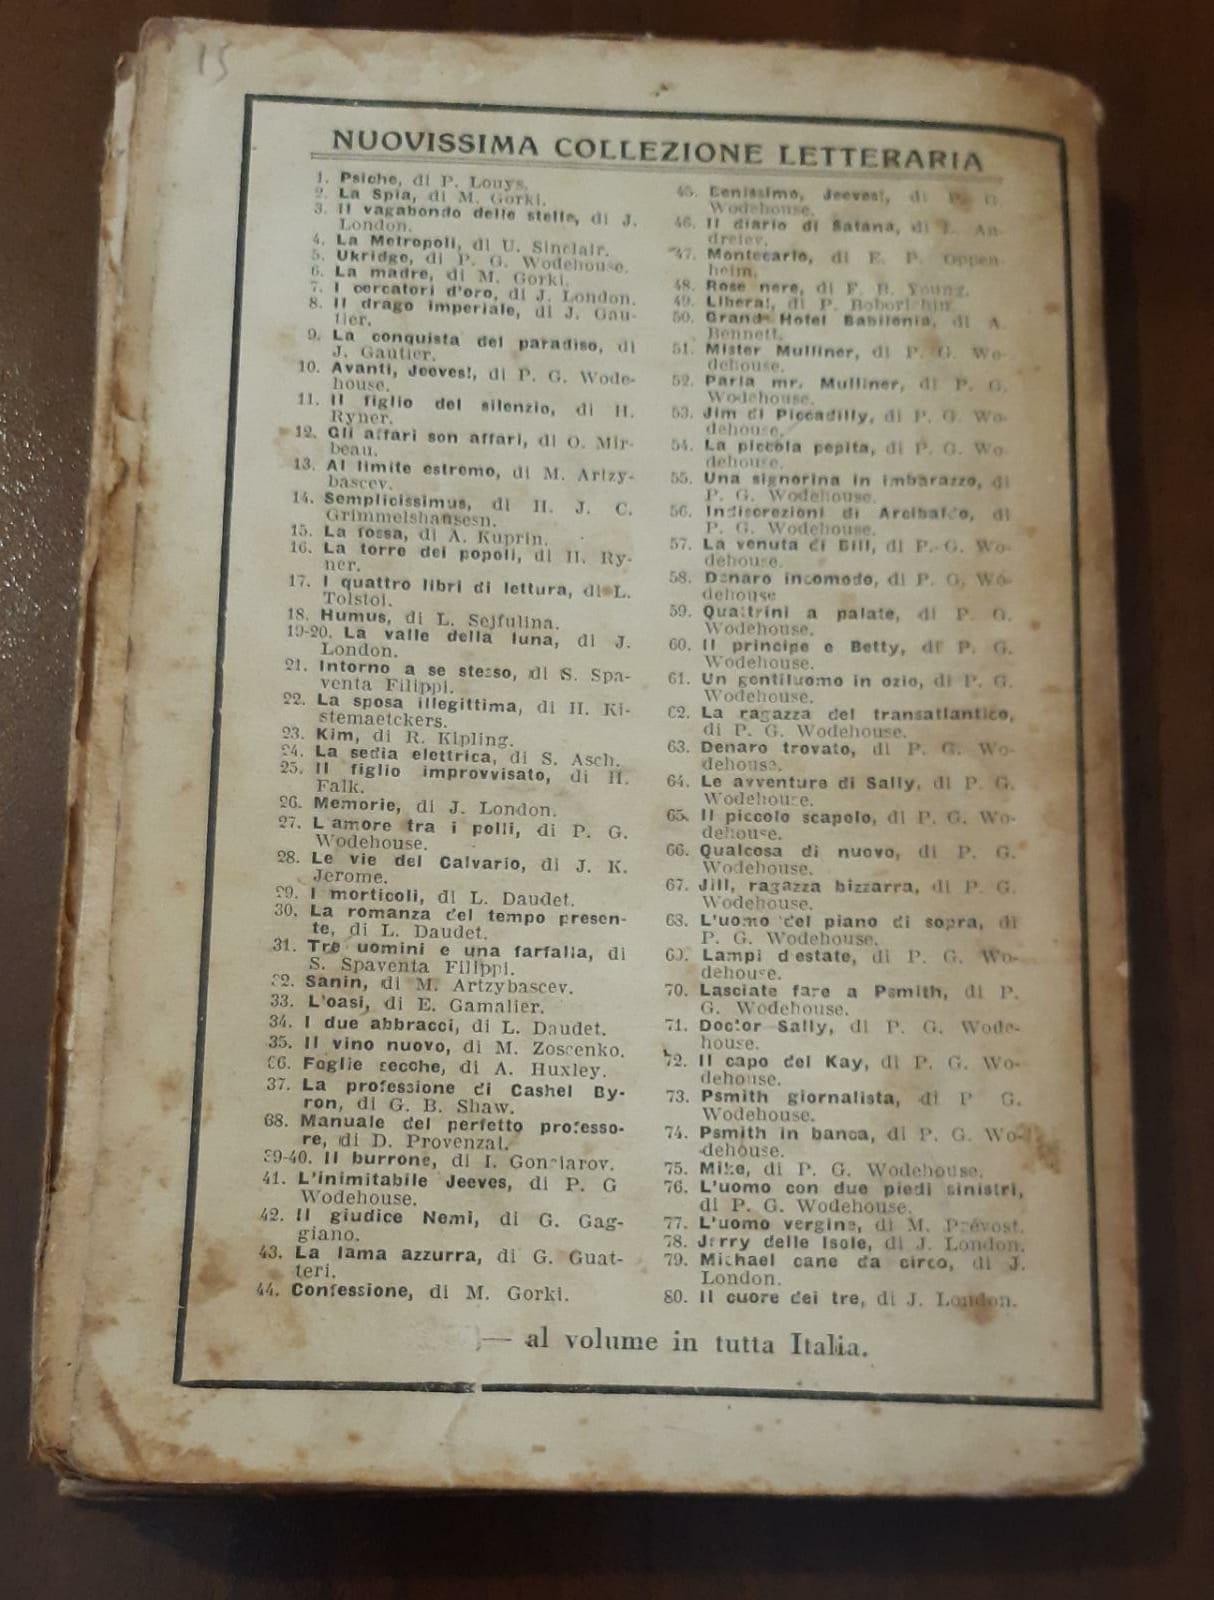 15
NUOVISSIMA COLLEZIONE LETTERARIA
1. Psiche, di P. Louys.
2. La Spia, di M. Gorki.
3. Il vagabondo delle stelle, di J.
London.
4. La Metropoli, di U. Sinclair.
5. Ukridge, di P. G. Wodehouse.
6. La madre, di M. Gorki.
7. I cercatori d'oro, di J. London.
8. Il drago imperiale, di J. Gau-
tier.
9. La conquista del paradiso, di
J. Gautier.
10. Avanti, Jeeves!, di P. G. Wode-
house.
11. Il figlio del silenzio, di H.
Ryner.
12. Gli affari son affari, di O. Mir-
beau.
13. Al limite estremo, di M. Artzy-
bascev.
14. Semplicissimus, di H. J. C.
Grimmelshausesn.
15. La fossa, di A. Kuprin.
16. La torre dei popoli, di H. Ry-
ner.
17. I quattro libri di lettura, di L.
Tolstoi.
18. Humus, di L. Sejfulina.
19-20. La valle della luna, di J.
London.
21. Intorno a se stesso, di S. Spa-
venta Filippi.
22. La sposa illegittima, di H. Ki-
stemaetckers.
23. Kim, di R. Kipling.
24. La sedia elettrica, di S. Asch.
25. Il figlio improvvisato, di H.
Falk.
26. Memorie, di J. London.
27. L'amore tra i polli, di P. G.
Wodehouse.
28. Le vie del Calvario, di J. K.
Jerome.
29. I morticoli, di L. Daudet.
30. La romanza del tempo presen-
te, di L. Daudet.
31. Tre uomini e una farfalla, di
S. Spaventa Filippi.
32. Sanin, di M. Artzybascev.
33. L'oasi, di E. Gamalier.
34. I due abbracci, di L. Daudet.
35. Il vino nuovo, di M. Zoscenko.
36. Foglie secche, di A. Huxley.
37. La professione di Cashel By-
ron, di G. B. Shaw.
38. Manuale del perfetto professo-
re, di D. Provenzal.
39-40. Il burrone, di I. Gonciarov.
41. L'inimitabile Jeeves, di P. G
Wodehouse.
42. Il giudice Nemi, di G. Gag-
giano.
43. La lama azzurra, di G. Guat-
teri.
44. Confessione, di M. Gorki.
45. Benissimo, Jeeves!, di P. G.
Wodehouse.
46. Il diario di Satana, di L. An-
dreiev.
47. Montecarlo, di E. P. Oppen-
heim.
48. Rose nere, di F. B. Young.
49. Libera!, di P. Boborichin.
50. Grand Hotel Babilonia, di A.
Bennett.
51. Mister Mulliner, di P. G. Wo-
dehouse.
52. Parla mr. Mulliner, di P. G.
Wodehouse.
53. Jim di Piccadilly, di P. G. Wo-
dehouse.
54. La piccola pepita, di P. G. Wo-
dehouse.
55. Una signorina in imbarazzo, di
P. G. Wodehouse.
56. Indiscrezioni di Arcibaldo, di
P. G. Wodehouse.
57. La venuta di Bill, di P. G. Wo-
dehouse.
58. Denaro incomodo, di P. G. Wo-
dehouse
59. Quattrini a palate, di P. G.
Wodehouse.
60. Il principe e Betty, di P. G.
Wodehouse.
61. Un gentiluomo in ozio, di P. G.
Wodehouse.
62. La ragazza del transatlantico,
di P. G. Wodehouse.
63. Denaro trovato, di P. G. Wo-
dehouse.
64. Le avventure di Sally, di P. G.
Wodehouse.
65. Il piccolo scapolo, di P. G. Wo-
dehouse.
66. Qualcosa di nuovo, di P. G.
Wodehouse.
67. Jill, ragazza bizzarra, di P. G.
Wodehouse.
68. L'uomo del piano di sopra, di
P. G. Wodehouse.
69. Lampi d'estate, di P. G. Wo-
dehouse.
70. Lasciate fare a Psmith, di P.
G. Wodehouse.
71. Doctor Sally, di P. G. Wode-
house.
72. Il capo del Kay, di P. G. Wo-
dehouse.
73. Psmith giornalista, di P G.
Wodehouse.
74. Psmith in banca, di P. G. Wo-
dehouse.
75. Mike, di P. G. Wodehouse.
76. L'uomo con due piedi sinistri,
di P. G. Wodehouse.
77. L'uomo vergine, di M. Prévost.
78. Jerry delle Isole, di J. London.
79. Michael cane da circo, di J.
London.
80. Il cuore dei tre, di J. London.
— al volume in tutta Italia.